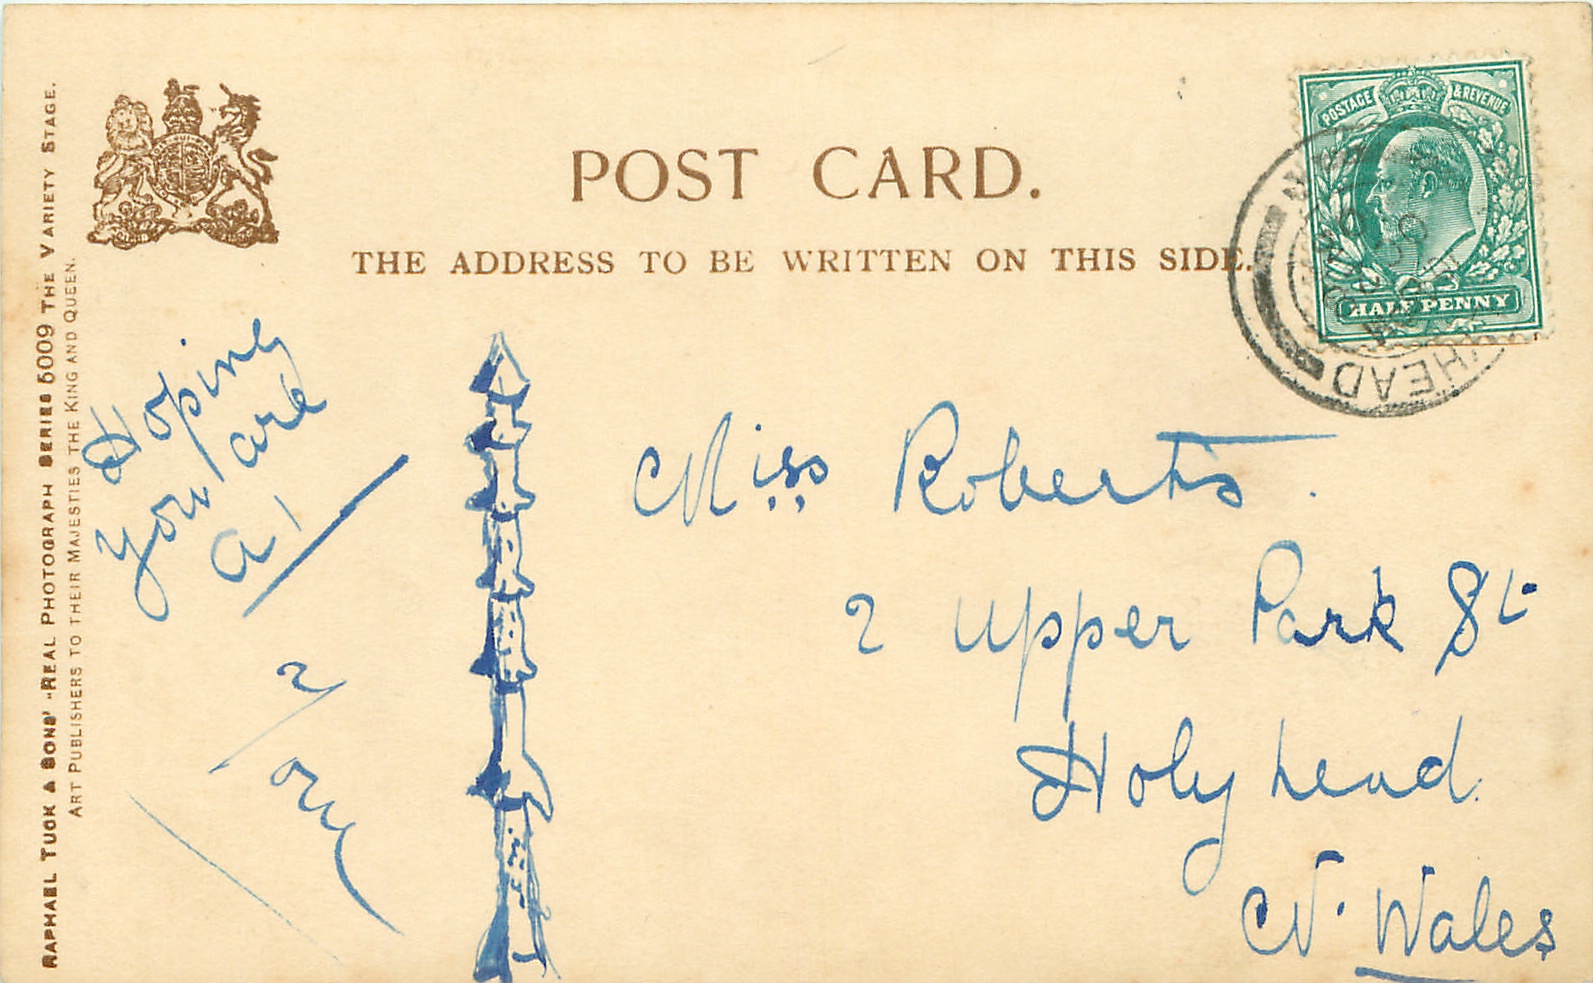 POST CARD.
THE ADDRESS TO BE WRITTEN ON THIS SIDE.
RAPHAEL TUCK & SONS' "REAL PHOTOGRAPH SERIES 5009 THE VARIETY STAGE.
ART PUBLISHERS TO THEIR MAJESTIES THE KING AND QUEEN.
POSTAGE & REVENUE
HALF PENNY
HEAD
Hoping
you are
A1
Miss Roberts.
2 Upper Park St.
Holyhead.
N. Wales